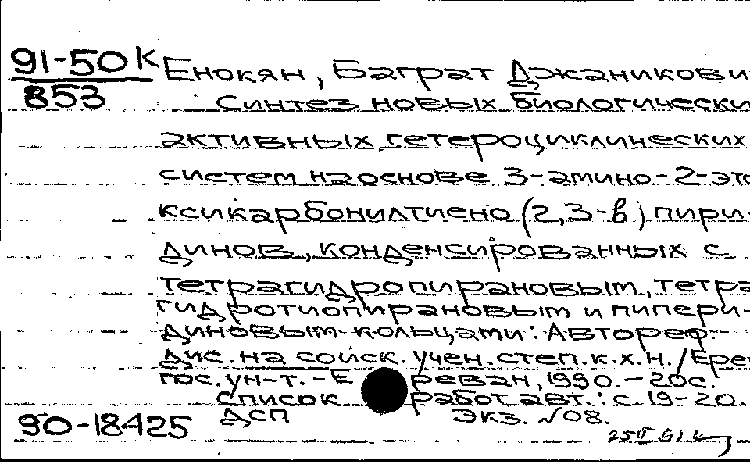 91-50 К Енокян, Баграт Джаникови
853 Синтез новых биологически
активных гетероциклических
систем на основе 3-амино-2-это
ксикарбонилтиено (2,3-в) пири-
динов, конденсированных с
тетрагидропирановым, тетра
гидротиопирановым и пипери-
диновым кольцами: Автореф.
дис. на соиск. учен. степ. к.х.н. / Ере
гос. ун-т. - Е реван, 1990. - 20с.
Список работ авт.: с. 19-20.
90-18425 ДСП Экз. №08.